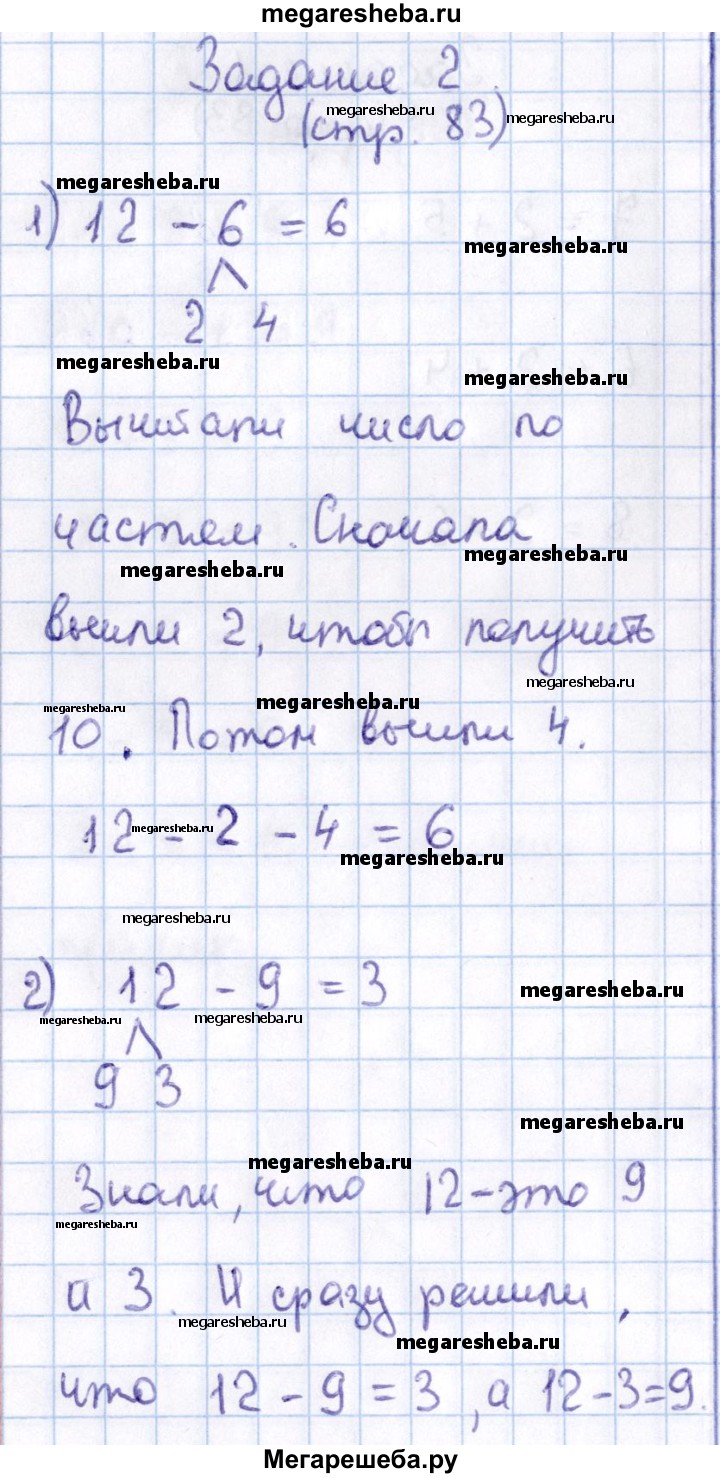 megaresheba.ru
Задание 2.
megaresheba.ru
(стр. 83)
megaresheba.ru
megaresheba.ru
1) 12 - 6 = 6
megaresheba.ru
2 4
megaresheba.ru
megaresheba.ru
Вычитали число по
частям. Сначала
megaresheba.ru
megaresheba.ru
вычли 2, чтобы получить
megaresheba.ru
megaresheba.ru
megaresheba.ru
10. Потом вычли 4.
megaresheba.ru
12 - 2 - 4 = 6
megaresheba.ru
megaresheba.ru
2) 12 - 9 = 3
megaresheba.ru
megaresheba.ru
megaresheba.ru
9 3
megaresheba.ru
megaresheba.ru
Знали, что 12 - это 9
megaresheba.ru
и 3. И сразу решили,
megaresheba.ru
megaresheba.ru
что 12 - 9 = 3, а 12 - 3 = 9.
Мегарешеба.ру